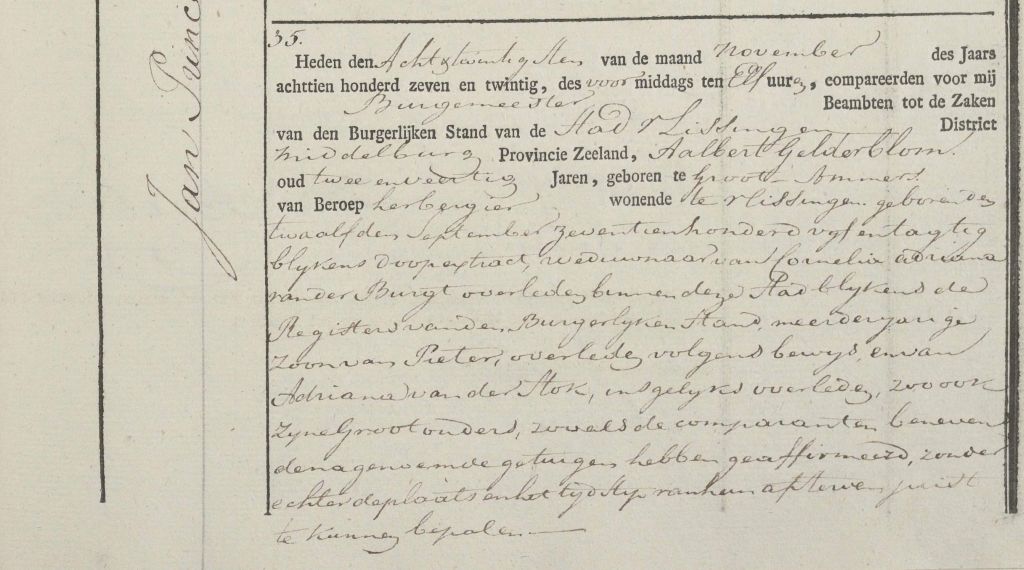 Jan Punc
35.
Heden den Acht & twintigsten van de maand November des Jaars
achttien honderd zeven en twintig, des voor middags ten Elf uure, compareerden voor mij
Burgemeester Beambten tot de Zaken
van den Burgerlijken Stand van de Stad Vlissingen District
Middelburg Provincie Zeeland, Aalbert Gelderblom.
oud twee en veertig Jaren, geboren te Groot Ammers
van Beroep herbergier wonende te Vlissingen geboren den
twaalfden September zeventienhonderd vyf en tagtig
blykens doopextract, weduwnaar van Cornelia Adriana
vander Burgt overleden binnen deze Stad blykens de
Registers van den Burgerlyken Stand, meerderjarige
Zoon van Pieter, overleden volgens bewys, en van
Adriana van der Stok, insgelyks overleden, zoo ook
zyne Grootouders, zoo als de comparanten beneven
de nagenoemde getuigen hebben geaffirmeerd, zonder
echter de plaats en het tydstip van hun afsterven juist
te kunnen bepalen.